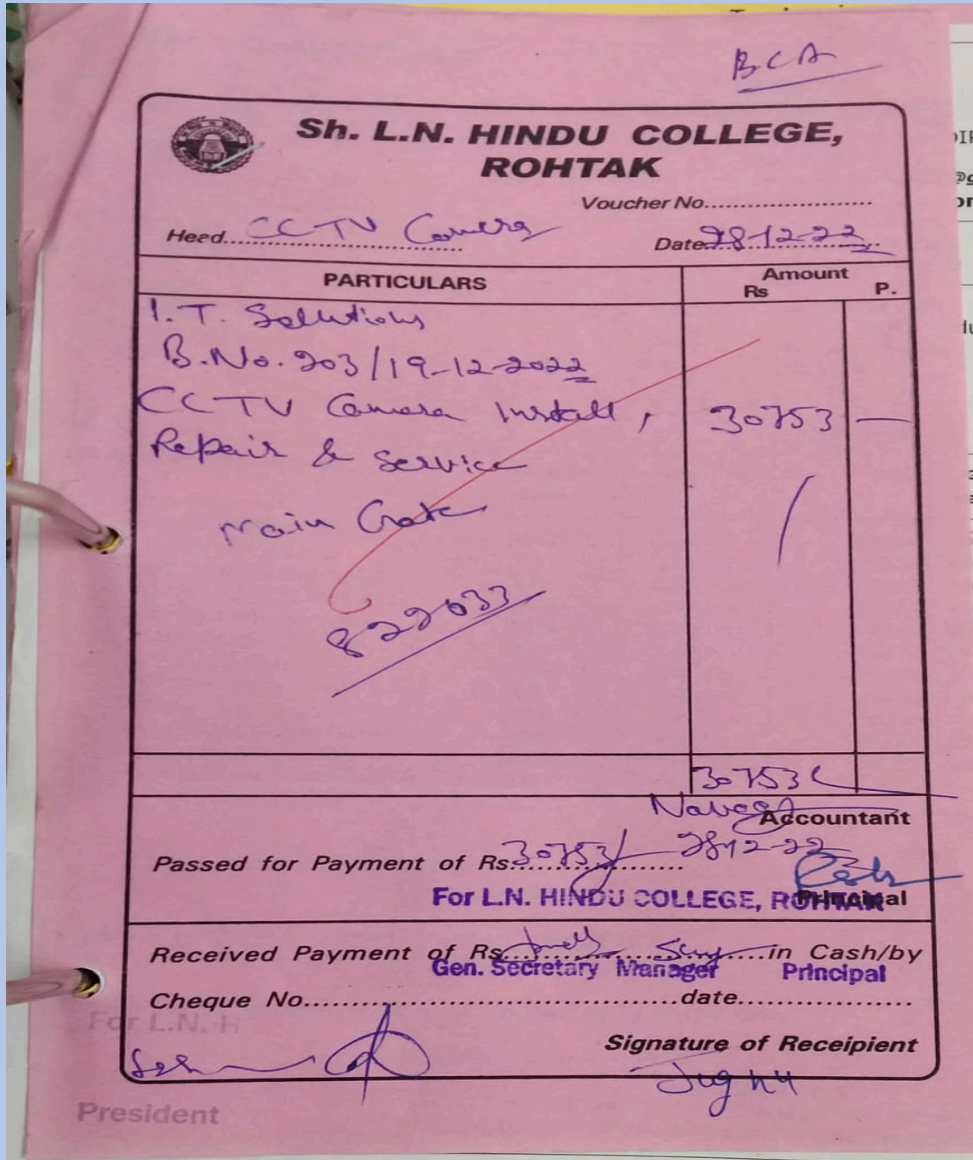 BCA
Sh. L.N. HINDU COLLEGE,
ROHTAK
Voucher No..................
Heed....CCTV Camera
Date..28-12-22
PARTICULARS
Amount
Rs P.
I.T. Solutions
B.No. 203/19-12-2022
CCTV Camera Install, 30753 —
Repair & Service
Main Gate
822033
30753
Accountant
Passed for Payment of Rs..30753/- 28-12-22
For L.N. HINDU COLLEGE, ROHTAK
Principal
Received Payment of Rs.....................in Cash/by
Gen. Secretary Manager Principal
Cheque No.......................................date..................
For L.N. H
Signature of Receipient
Jugnu
President